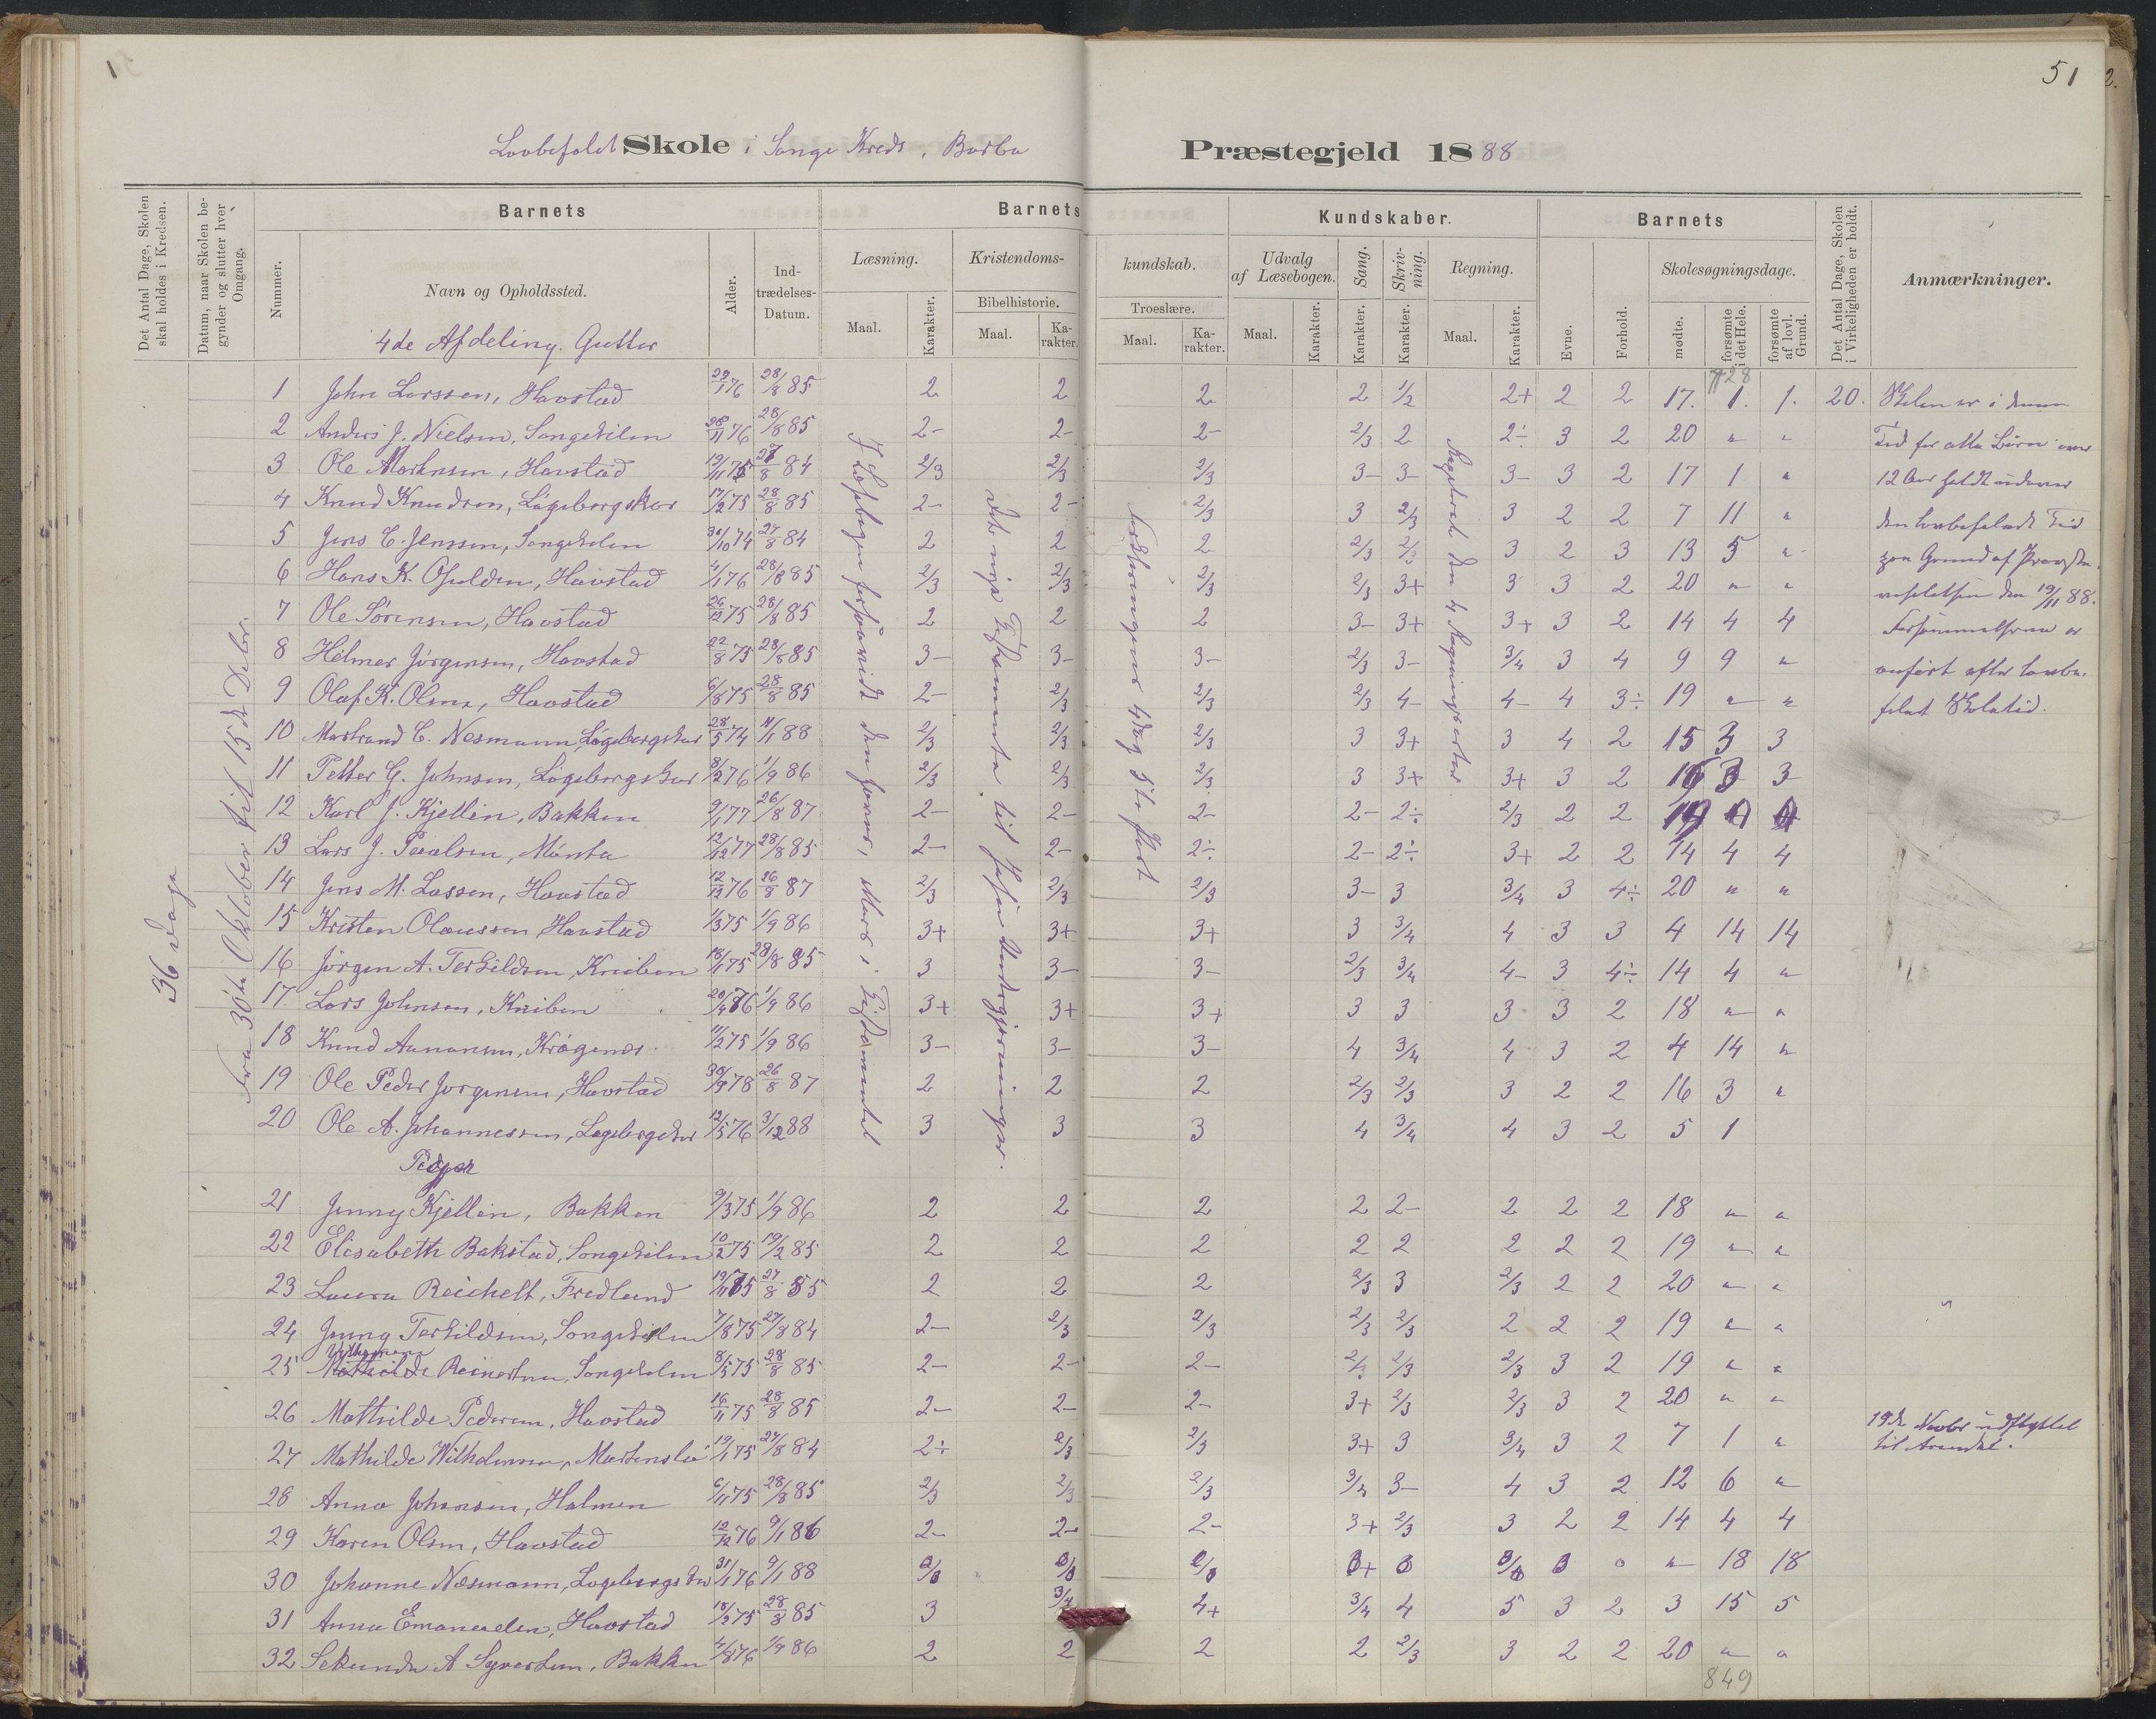 51
Lovbefalet Skole i Songe Kreds, Barbu Præstegjeld 1888
Det Antal Dage, Skolen skal holdes i Kredsen.
Datum, naar Skolen begynder og slutter hver Omgang.
Barnets
Nummer.
Navn og Opholdssted.
Alder.
Indtrædelses-Datum.
Barnets Kundskaber.
Læsning.
Maal.
Karakter.
Kristendomskundskab.
Bibelhistorie.
Maal.
Karakter.
Troeslære.
Maal.
Karakter.
Udvalg af Læsebogen.
Maal.
Karakter.
Sang.
Karakter.
Skrivning.
Karakter.
Regning.
Maal.
Karakter.
Barnets
Evne.
Forhold.
Skolesøgningsdage.
mødte.
forsømte i det Hele.
forsømte af lovl. Grund.
Det Antal Dage, Skolen i Virkeligheden er holdt.
Anmærkninger.
36 Dage
Fra 30te Oktober til 15de Decbr.
4de Afdeling. Gutter
1 John Larssen, Havstad 29/1 76 28/8 85 2 2 2 2 1/2 2+ 2 2 17. 1. 1. 20.
2 Anders J. Nielsen, Songekilen 28/11 76 28/8 85 2- 2- 2- 2/3 2 2÷ 3 2 20 " "
3 Ole Mortensen, Havstad 19/11 75 27/8 84 2/3 2/3 2/3 3- 3- 3- 3 2 17 1 "
4 Knud Knudsen, Løgebergskar 17/12 75 28/8 85 2- 2- 2/3 3 2/3 3 2 2 7 11 "
5 Jens C. Jenssen, Songekilen 30/10 74 27/8 84 2 2 2 2/3 2/3 3 2 3 13 5 "
6 Hans K. Osulden, Havstad 4/1 76 28/8 85 2/3 2/3 2/3 2/3 3+ 3 3 2 20 " "
7 Ole Sørensen, Havstad 26/12 75 28/8 85 2 2 2 3- 3+ 3+ 3 2 14 4 4
8 Helmer Jørgensen, Havstad 22/8 75 28/8 85 3- 3- 3- 2/3 3- 3/4 3 4 9 9 "
9 Olaf K. Olsen, Havstad 6/8 75 28/8 85 2- 2/3 2/3 2/3 4- 4- 4 3÷ 19 " "
10 Marstrand C. Nesmann, Løgebergskar 28/5 74 11/1 88 2/3 2/3 2/3 3 3+ 3 4 2 15 3 3
11 Petter G. Johnsen, Løgebergskar 8/2 76 1/9 86 2/3 2/3 2/3 3 3+ 3+ 3 2 16 3 3
12 Karl J. Kjellin, Bakken 9/1 77 26/8 87 2- 2- 2- 2- 2÷ 2/3 2 2
13 Lars J. Paalsen, Mønta 12/12 77 28/8 85 2- 2- 2÷ 2- 2÷ 3+ 2 2 14 4 4
14 Jens M. Lassen, Havstad 12/12 76 26/8 87 2/3 2/3 2/3 3- 3 3/4 3 4÷ 20 " "
15 Kristen Olaussen Havstad 1/3 75 1/9 86 3+ 3+ 3+ 3 3/4 4 3 3 4 14 14
16 Jørgen A. Terkildsen, Kniben 18/1 75 28/8 85 3 3- 3- 2/3 3/4 4- 3 4÷ 14 4 "
17 Lars Johnsen, Kniben 20/4 76 1/9 86 3+ 3+ 3+ 3 3 3 3 2 18 " "
18 Knud Aanonsen, Krøgenes 11/2 75 1/9 86 3- 3- 3- 4 3/4 4 3 2 4 14 "
19 Ole Peder Jørgensen, Havstad 30/9 78 26/8 87 2 2 2 2/3 2/3 3 2 2 16 3 "
20 Ole A. Johannessen, Løgebergskar 12/5 76 3/12 88 3 3 3 4 3/4 4 3 2 5 1
Piger
21 Jenny Kjellin, Bakken 9/3 75 1/9 86 2 2 2 2 2- 2 2 2 18 " "
22 Elisabeth Bakstad, Songekilen 10/2 75 19/2 85 2 2 2 2 2 2 2 2 19 " "
23 Laura Reichelt, Fredlund 19/11 75 27/8 85 2 2 2 2/3 3 2/3 2 2 20 " "
24 Jenny Terkildsen, Songekilen 7/8 75 27/8 84 2- 2/3 2/3 2/3 2/3 2 2 2 19 " "
25 Reinertsen, Songekilen 8/5 75 28/8 85 2- 2- 2- 2/3 2/3 2/3 3 2 19 " "
26 Mathilde Pedersen, Havstad 16/11 75 28/8 85 2- 2- 2- 3+ 2/3 2/3 3 2 20 " "
27 Mathilde Wilhelmsen, Martenslei 19/1 75 27/8 84 2÷ 2/3 2/3 3+ 3 3/4 3 2 7 1 "
28 Anna Johansen, Holmen 6/11 75 28/8 85 2/3 2/3 2/3 3/4 3- 4 3 2 12 6 "
29 Karen Olsen, Havstad 12/12 76 9/1 86 2- 2- 2- 3+ 2/3 3 2 2 14 4 4
30 Johanne Nesmann, Løgebergskar 31/1 76 9/1 88 " 18 18
31 Anna Emanuelsen, Havstad 18/2 75 28/8 85 3 3/4 4+ 3/4 4 5 3 2 3 15 5
32 Sekunda A Syvertsen, Bakken 4/8 76 1/9 86 2 2 2 2 2/3 3 2 2 20 " "
849
I Læsebogen forsaavidt den forrer, ellers i Testamentet
det nye Testamente til Jesu Undergjerninger.
Forklaringens 4de og 5te Part
Regelret den 4 Regningsarter
Skolen er i denne
Tid for alle Børn over
12 Aar holdt udover
den lovbefalede Tid
paa Grund af Provste-
visitatsen den 19/11 88.
Forsømmelserne er
anført efter lovbe-
falet Skoletid.
19de Novbr udflyttet
til Arendal.